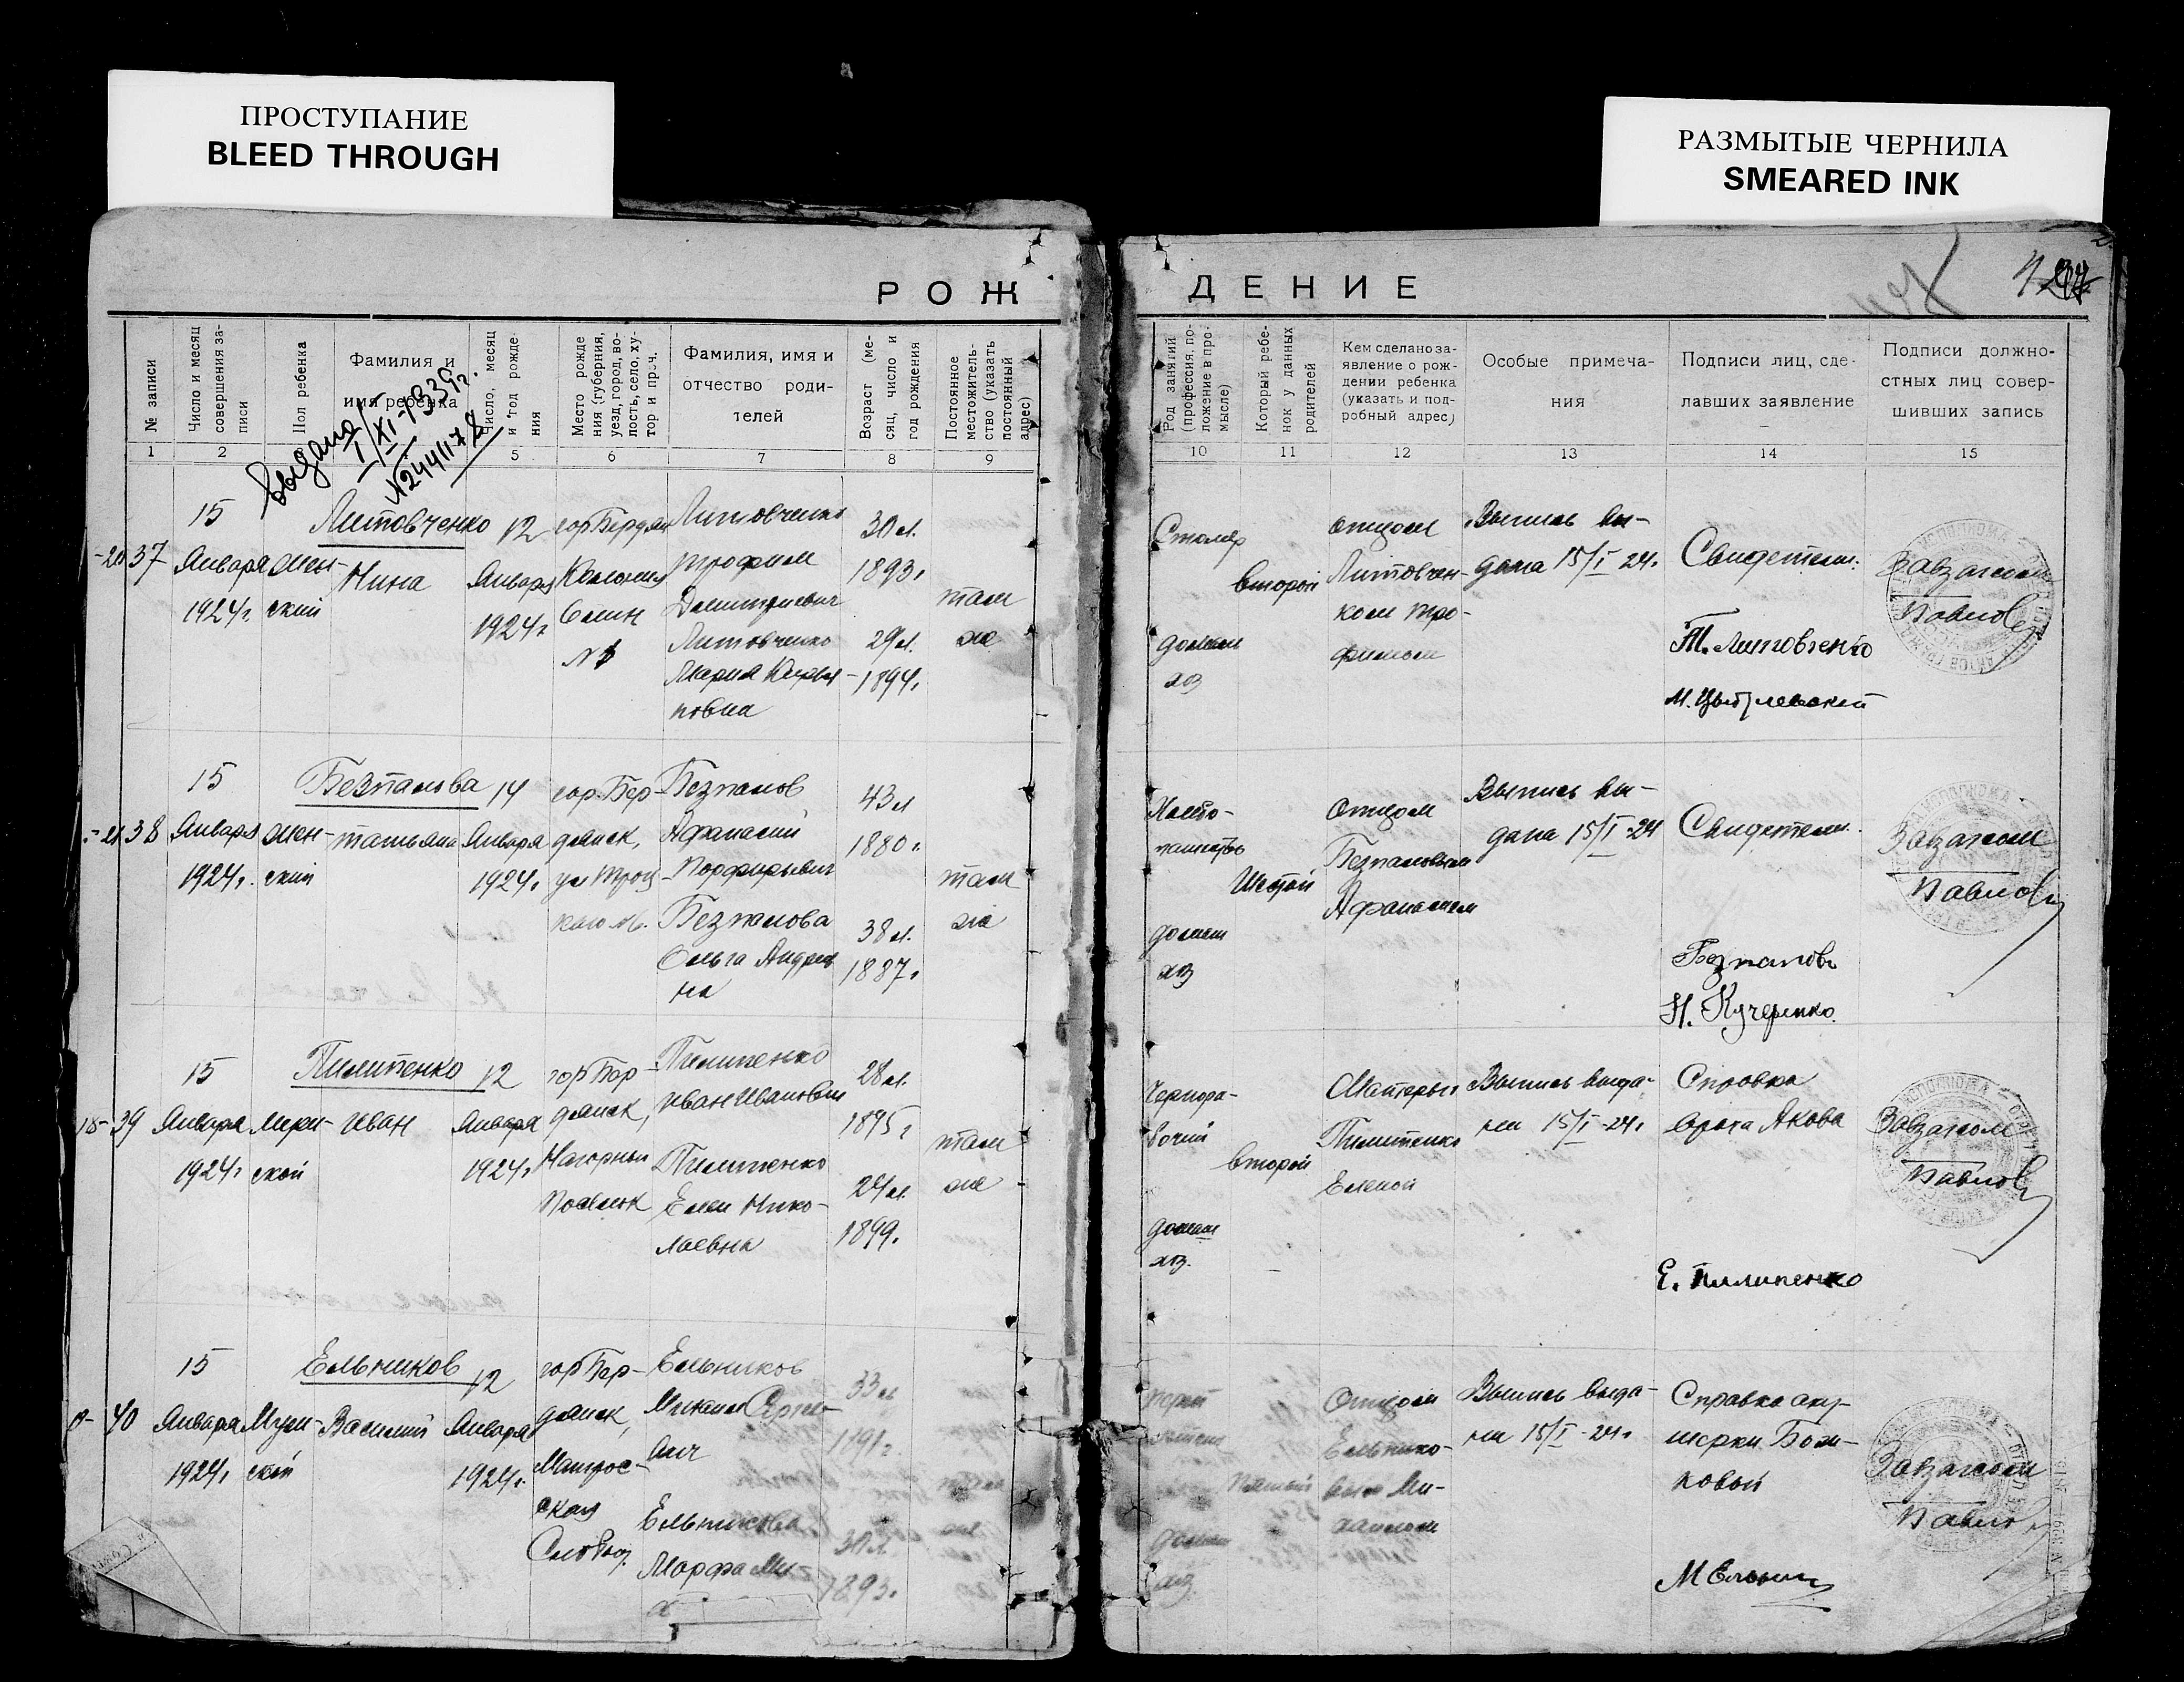 ПРОСТУПАНИЕ
BLEED THROUGH
РАЗМЫТЫЕ ЧЕРНИЛА
SMEARED INK
РОЖ
ДЕНИЕ
№ записи
Число и месяц совершения записи
Пол ребенка
Фамилия и
имя ребенка
Число, месяц и год рождения
Место рождения (губерния, уезд, город, волость, село, хутор и проч.
Фамилия, имя и
отчество роди-
телей
Возраст (месяц, число и год рождения
Постоянное местожительство (указать постоянный адрес)
Род занятий (профессия, положение в промысле)
Который ребенок у данных родителей
Кем сделано за-
явление о рож-
дении ребенка
(указать и под-
робный адрес)
Особые примеча-
ния
Подписи лиц, сде-
лавших заявление
Подписи должно-
стных лиц совер-
шивших запись
1 2 5 6 7 8 9
10 11 12 13 14 15
выдано
I/XI-1939г.
37
15
Января
1924г.
жен-
ский
Литовченко
Нина
12
Января
1924г
гор Бердян
Колония
№
Литовченко
Трофим
Дмитриевич
Литовченко
Мария
30 л.
1893г
29 л.
1894г
там
же
Столяр
домаш
хоз
второй
отцом
Литовчен-
ком Тро-
фимом
Выпись вы-
дана 15/I 24г
Свидетели:
Т. Литовченко
Завзагсом
Павлов
38
15
Января
1924г.
жен-
ский
Безпалова
Татьяна
14
Января
1924г
гор. Бер-
дянск,
ул Троц-
Безпалов
Афанасий
Порфирьевич
Безпалова
Ольга Андреев
на
43 л
1880г
38 л.
1887г
там
же
Хлебо-
пашець
домаш
хоз
Шестой
Отцом
Безпаловым
Афанасием
Выпись вы-
дана 15/I-24
Свидетели.
Безпаловъ
Н. Кучеренко.
Завзагсом
Павлов
39
15
Января
1924г
муж-
ской
Пилипенко
Иван
12
Января
1924г
гор Бер-
дянск,
Нагорный
Поселок
Пилипенко
Иван Иванович
Пилипенко
Елен Нико-
лаевна
28 л.
1895г
24 л.
1899г
там
же
Черпора-
бочий
домаш
хоз.
второй
Матерью
Пилипенко
Еленой
Выпись выда-
на 15/I-24г
Справка
врача Якова
Е. Пилипенко
Завзагсом
Павлов
40
15
Января
1924г
Муж-
ской
Ельников
Василий
12
Января
1924г.
гор Бер-
дянск,
Матрос-
ская
Слобод.
Ельников
Михаил
Ельникова
Марфа
33 л
1891г.
30 л
1893г
там
же
Пятый
домаш
хоз
Отцом
Ельнико-
вым Ми-
хаилом
Выпись выда-
на 15/I-24г
Справка аку-
шерки Бож-
ковый
Завзагсом
Павлов